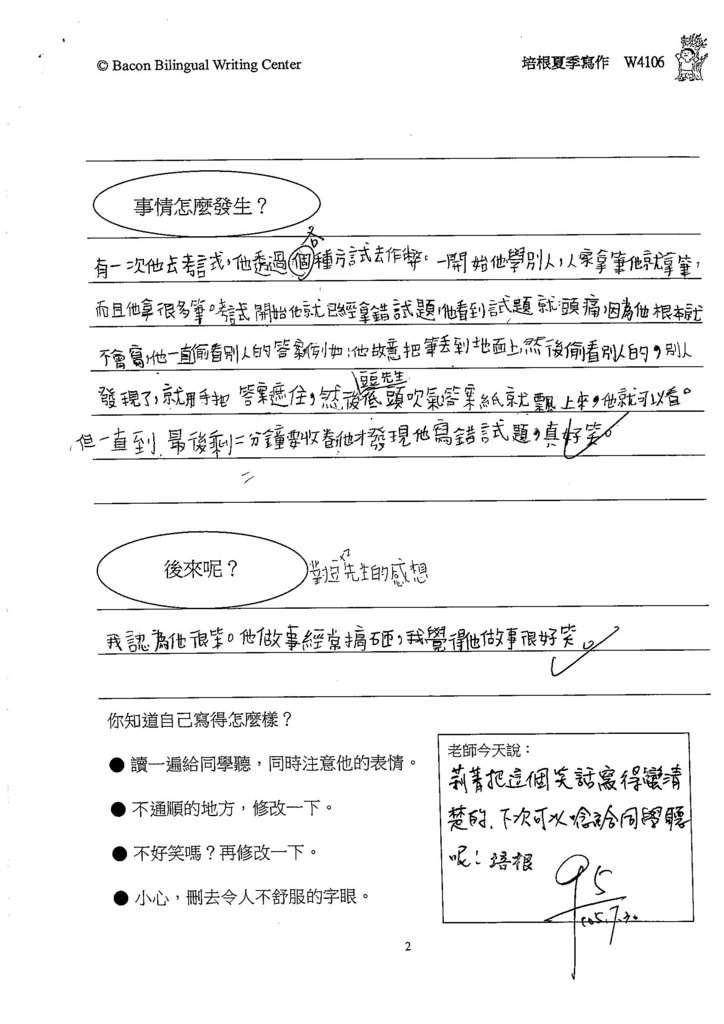 © Bacon Bilingual Writing Center
培根夏季寫作 W4106
事情怎麼發生？
各
有一次他去考試，他透過個種方試去作弊。一開始他學別人，人家拿筆他就拿筆，
而且他拿很多筆。考試開始他就已經拿錯試題，他看到試題就頭痛，因為他根本就
不會寫，他一直偷看別人的答案例如：他故意把筆丟到地面上，然後偷看別人的，別人
豆先生
發現了，就用手把答案遮住，然後底頭吹氣答案紙就飄上來，他就可以看。
但一直到最後剩二分鐘要收卷他才發現他寫錯試題，真好笑。
後來呢？
對豆先生的感想
我認為他很笨。他做事經常搞砸，我覺得他做事很好笑。
你知道自己寫得怎麼樣？
● 讀一遍給同學聽，同時注意他的表情。
● 不通順的地方，修改一下。
● 不好笑嗎？再修改一下。
● 小心，刪去令人不舒服的字眼。
老師今天說：
莉菁把這個笑話寫得蠻清
楚的、下次可以唸給同學聽
呢！培根
95
105.7.30
2